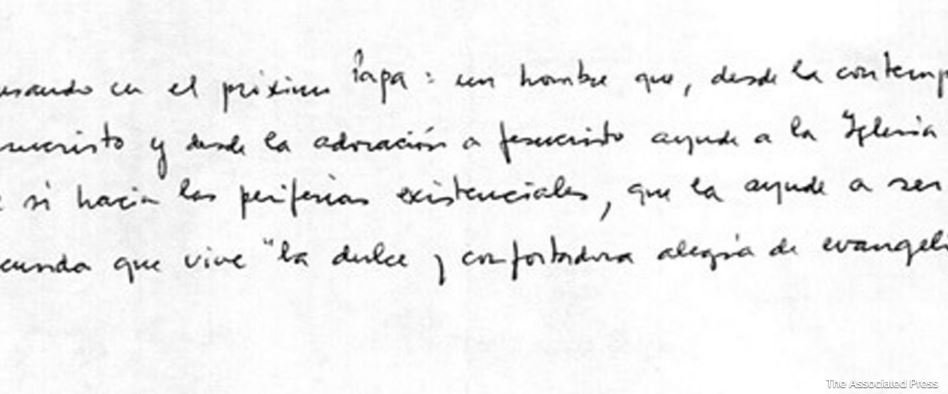 nsando en el próximo Papa: un hombre que, desde la contemp
sucristo y desde la adoración a Jesucristo ayude a la Iglesia
sí hacia las periferias existenciales, que la ayude a ser
cunda que vive "la dulce y confortadora alegría de evangeli
The Associated Press